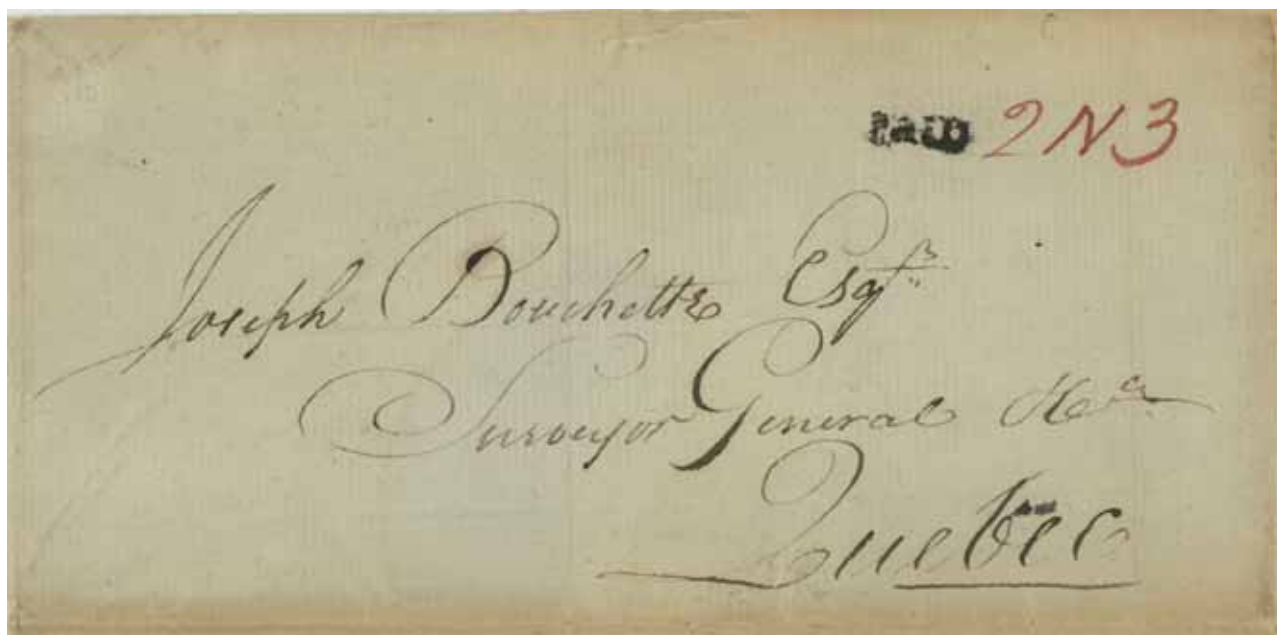 PAID 2N3
Joseph Bouchette Esqr
Surveyor General &ca
Quebec